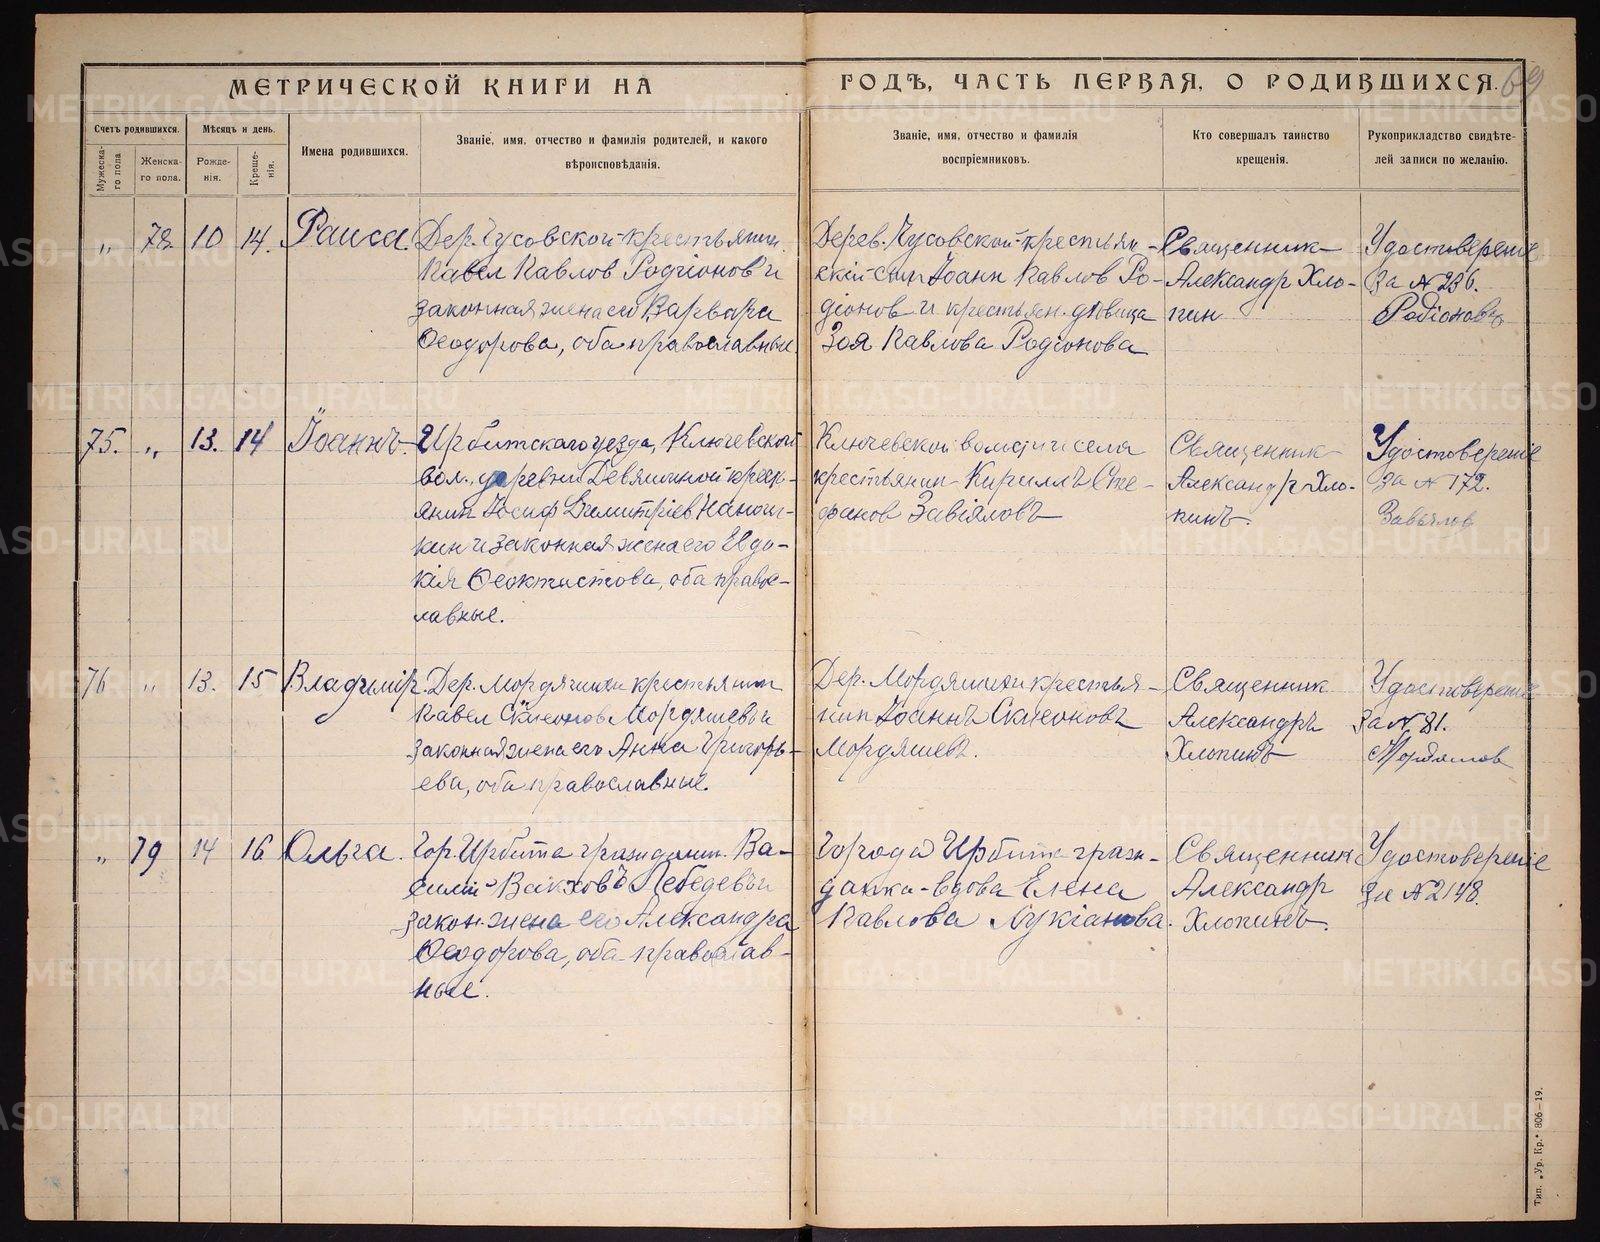 МЕТРИЧЕСКОЙ КНИГИ НА ГОДЪ, ЧАСТЬ ПЕРВАЯ, О РОДИВШИХСЯ.
69
Счетъ родившихся.
Мужеска-го пола
Женска-го пола.
Мѣсяцъ и день.
Рожде-нія.
Креще-нія.
Имена родившихся.
Званіе, имя, отчество и фамилія родителей, и какого
вѣроисповѣданія.
Званіе, имя, отчество и фамилія
воспріемниковъ.
Кто совершалъ таинство
крещенія.
Рукоприкладство свидѣте-
лей записи по желанію.
„ 78 10 14. Раиса.
Дер. Чусовской крестьянин
Павел Павлов Родіонов и
законная жена его Варвара
Ѳеодорова, оба православные.
Дерев. Чусовской крестьян-
скій сын Іоанн Павлов Ро-
діонов и крестьян. дѣвица
Зоя Павлова Родіонова
Священник
Александр Хло-
пин
Удостоверение
За № 236.
Родіоновъ
75. „ 13. 14 Іоаннъ.
Ирбитского уезда, Ключевской
вол., деревни Девяшиной крест-
янин Іосиф Димитріев
и законная жена его Евдо-
кія Ѳеоктистова, оба право-
лавные.
Ключевской волости и села
крестьянин Кириллъ Сте-
фанов Завіяловъ
Священник
Александр Хло-
пинъ.
Удостоверение
За № 172.
Завьялов
76 „ 13. 15 Владимір.
Дер. Мордяшихи крестьянин
Павел Мордяшевъ и
законная жена его Анна Григорь-
ева, оба православные.
Дер. Мордяшихи крестья-
нин Іоаннъ
Мордяшевъ.
Священник
Александръ
Хлопинъ
Удостоверение
За № 81.
Мордяшов
„ 79 14 16 Ольга.
Гор. Ирбита гражданин Ва-
силій Вакховъ Лебедевъ и
закон. жена его Александра
Ѳеодорова, оба православ-
ные.
Города Ирбита граж-
данка-вдова Елена
Павлова Лукіанова.
Священник
Александр
Хлопинъ.
Удостоверение
За № 2148.
Тип. „Ур. Кр.“ 806—19.
METRIKI.GASO-URAL.RU